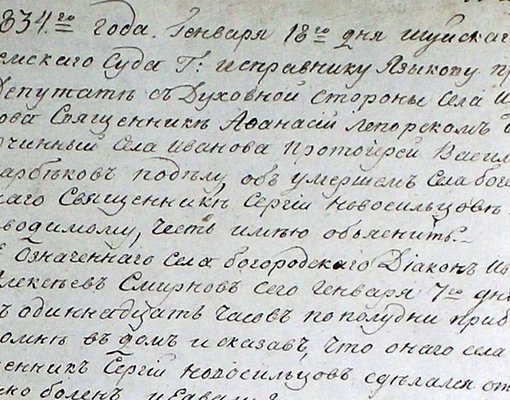 834.го года. Генваря 18го дня шуйскаг
емскаго Суда Г: исправнику Языкову пр
Депутатѣ съ Духовной стороны села И
ова Священникѣ Афанасіи Лепорскомъ
чинный села иванова Протоіерей Васил
арбѣковъ подѣлу объ умершемъ села бого
каго Священникѣ Сергіи Новосильцовѣ
водимому, честь имѣю объяснить.
Означеннаго села богородскаго Діаконъ Ив
Алексѣевъ Смирновъ сего Генваря 7го дня
ъ одиннадцать часовъ пополудни приб
комнѣ въ домъ и сказавъ, что онаго села
щенникъ Сергій Новосильцовъ сдѣлался от
ко боленъ